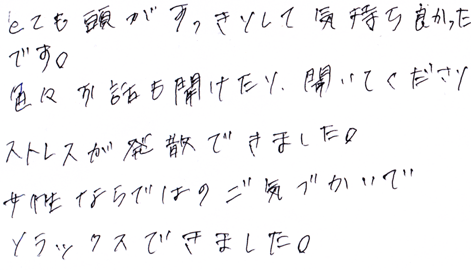 とても頭がすっきりして気持ち良かった
です。
色々お話も聞けたり、聞いてくださり
ストレスが発散できました。
女性ならではのご気づかいで
リラックスできました。